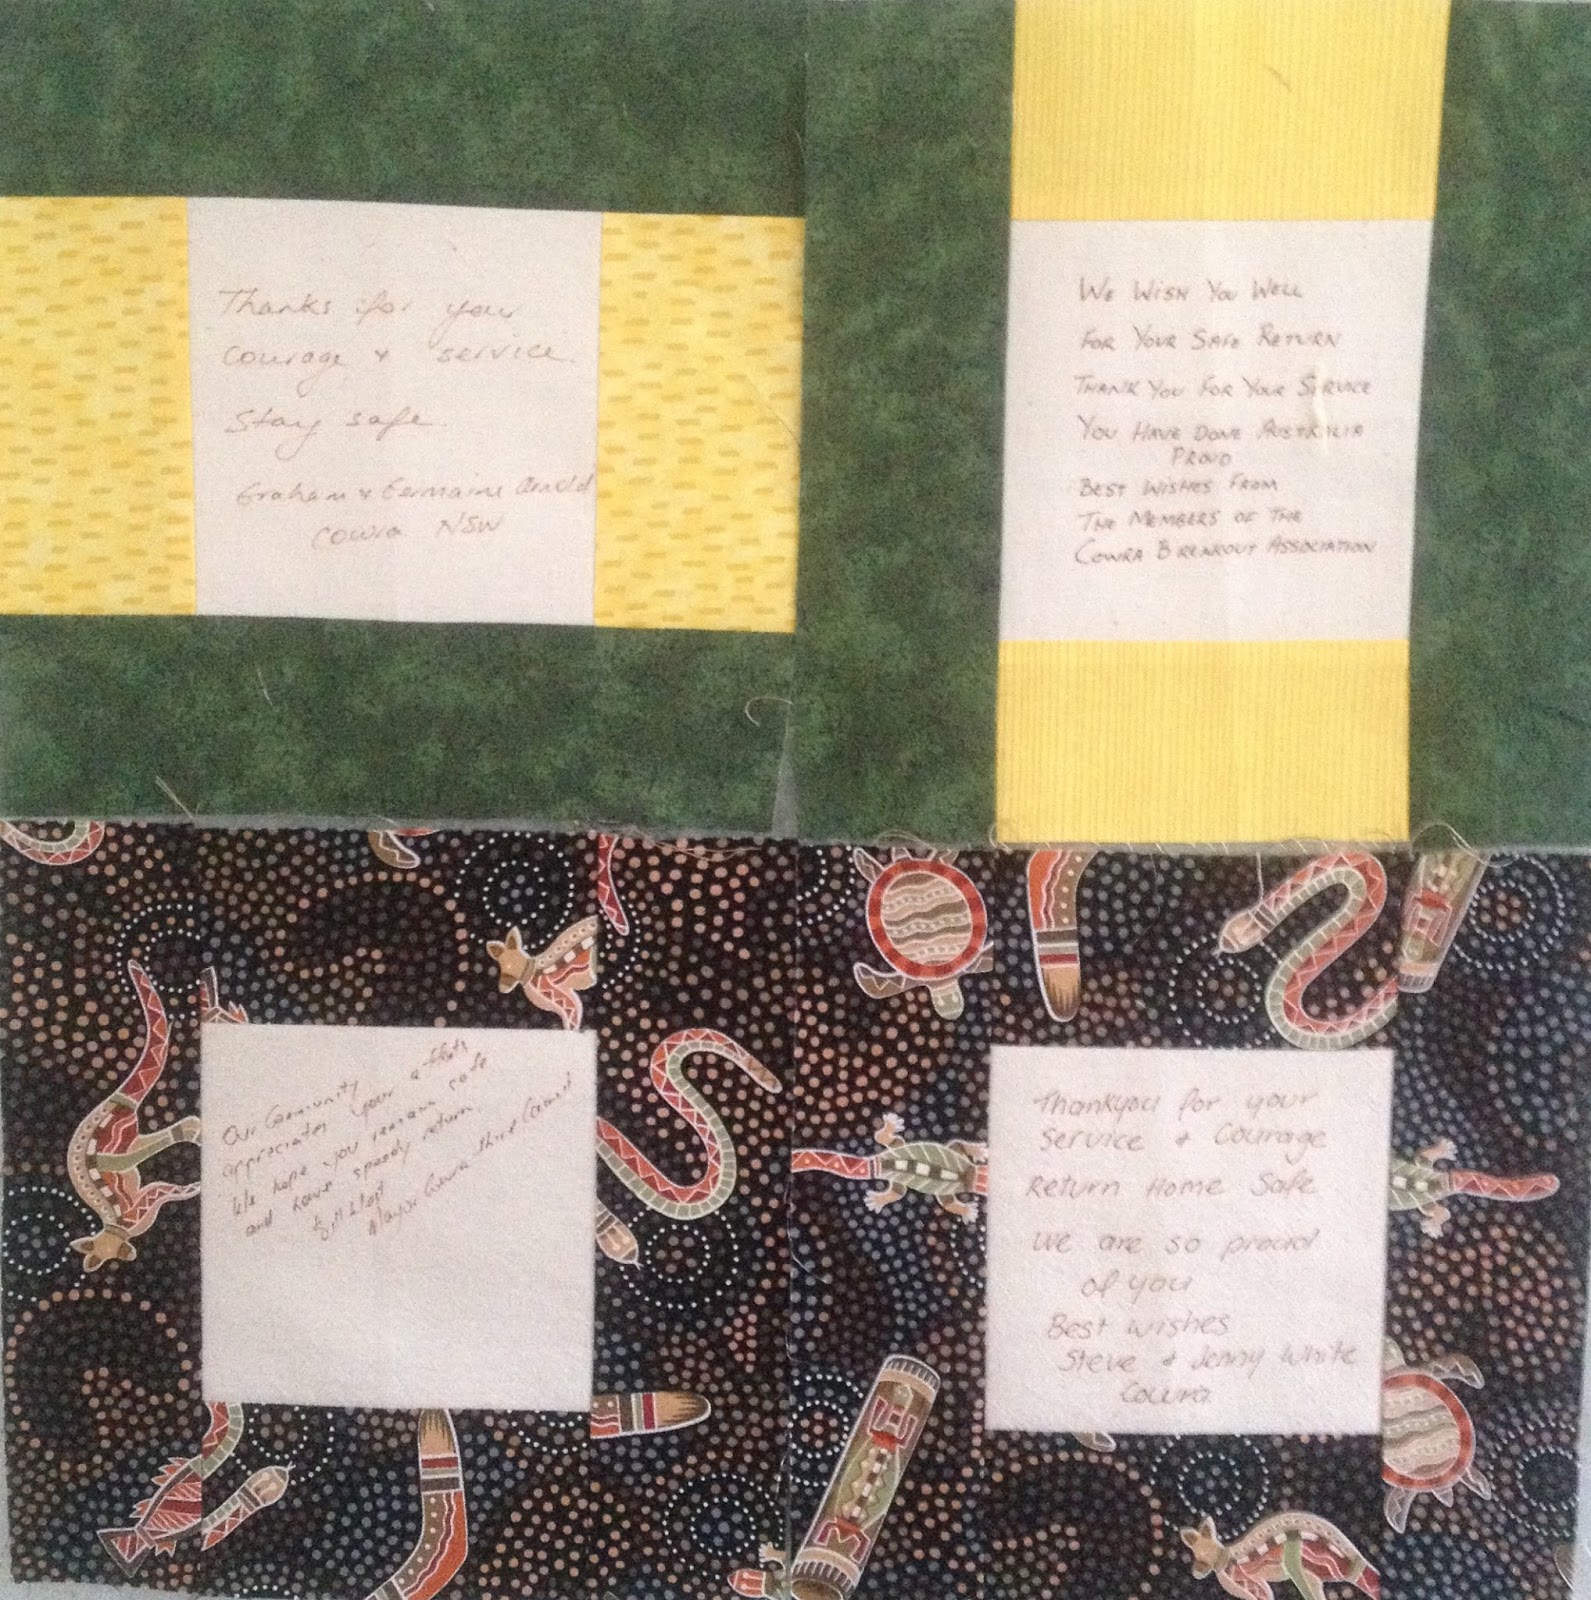 Thanks for your
Courage + service.
Stay safe.
Graham + Germaine Arnold
Cowra NSW
WE WISH YOU WELL
FOR YOUR SAFE RETURN
THANK YOU FOR YOUR SERVICE
YOU HAVE DONE AUSTRALIA
PROUD
BEST WISHES FROM
THE MEMBERS OF THE
COWRA BREAKOUT ASSOCIATION
Our Community
appreciates your efforts
We hope you remain safe
and have speedy return.
Bill West
Mayor Cowra Shire Council
Thankyou for your
Service + Courage
Return Home Safe
We are so proud
of you
Best wishes
Steve + Jenny White
Cowra.